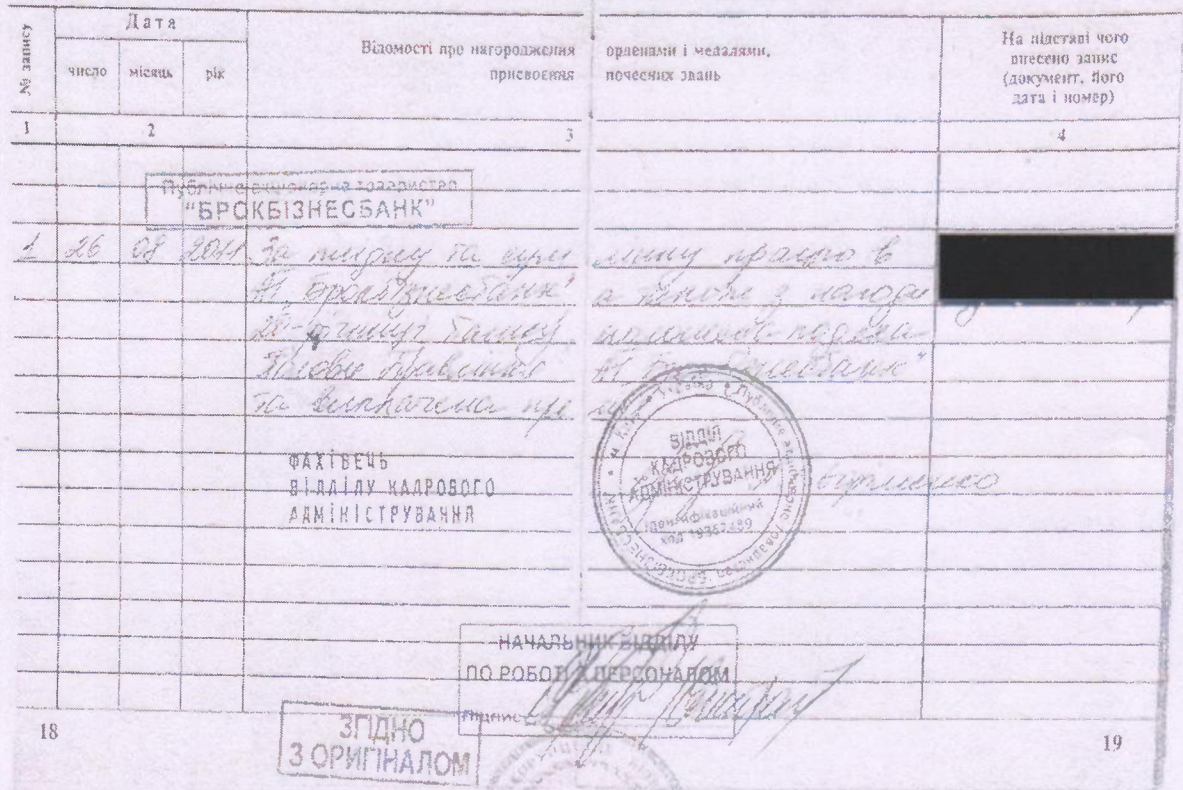 № запису
Дата
число місяць рік
Відомості про нагородження орденами і медалями,
присвоєння почесних звань
На підставі чого
внесено запис
(документ, його
дата і номер)
1 2 3 4
Публічне акціонерне товариство
"БРОКБІЗНЕСБАНК"
1 26 08 2011 За плідну та сумлінну працю в
АТ "Брокбізнесбанк", а також з нагоди
банку
Голови Правління АТ "Брокбізнесбанк"
та виплачена премія
ФАХІВЕЦЬ
ВІДДІЛУ КАДРОВОГО
АДМІНІСТРУВАННЯ
ВІДДІЛ
КАДРОВОГО
АДМІНІСТРУВАННЯ
ідентифікаційний
код 19357489
Публічне акціонерне товариство "БРОКБІЗНЕСБАНК" * м. Київ * Україна *
НАЧАЛЬНИК ВІДДІЛУ
ПО РОБОТІ З ПЕРСОНАЛОМ
Підпис
ЗГІДНО
З ОРИГІНАЛОМ
18
19